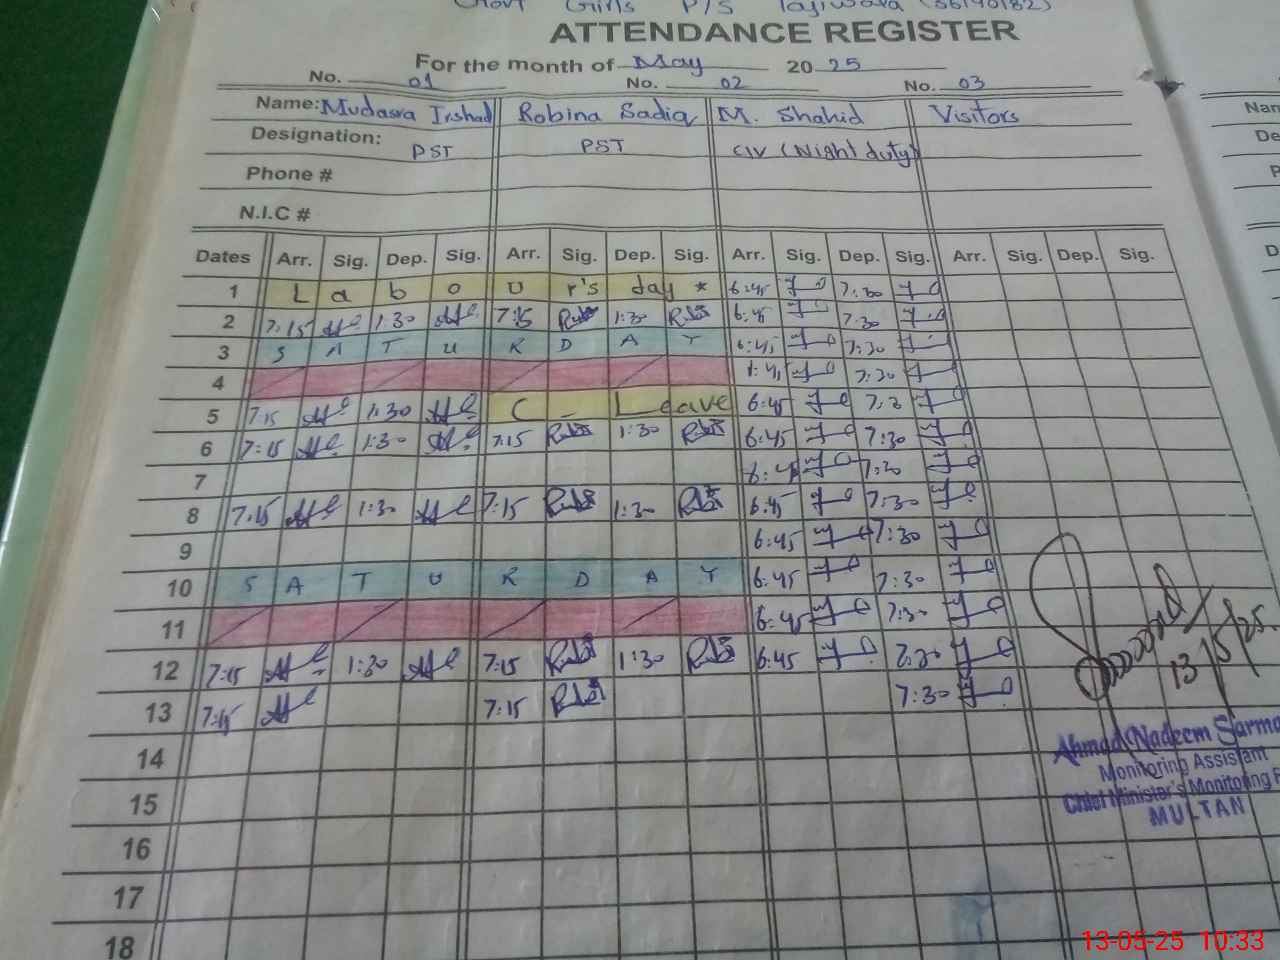 Govt Girls P/S Tajiwara (36140182)
ATTENDANCE REGISTER
For the month of May 2025
No. 01 No. 02 No. 03
Name: Mudasra Irshad Robina Sadiq M. Shahid Visitors
Designation: PST PST CIV (Night duty)
Phone #
N.I.C #
Dates Arr. Sig. Dep. Sig. Arr. Sig. Dep. Sig. Arr. Sig. Dep. Sig. Arr. Sig. Dep. Sig.
1 Labour's day * 6:45 7:30
2 7:15 1:30 7:15 1:30 6:45 7:30
3 SATURDAY 6:45 7:30
4 7:30
5 7:15 1:30 C - Leave 6:45
6 7:15 1:30 7:15 1:30 6:45 7:30
7 7:30
8 7:15 1:30 7:15 1:30 6:45 7:30
9 6:45 7:30
10 SATURDAY 6:45 7:30
11 6:45 7:30
12 7:15 1:30 7:15 1:30 6:45 7:30
13 7:15 7:15 7:30
13/5/25.
14
Ahmad Nadeem
Monitoring Assistant
15
Chief Minister's Monitoring
MULTAN
16
17
18
13-05-25 10:33